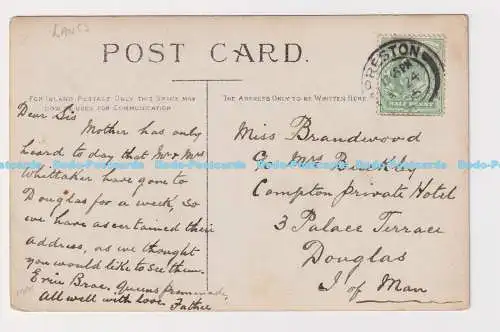 LANCS
POST CARD.
FOR INLAND POSTAGE ONLY THIS SPACE MAY
NOW BE USED FOR COMMUNICATION
THE ADDRESS ONLY TO BE WRITTEN HERE
PRESTON
HALF PENNY
Dear Sis
Mother has only
heard to day that Mr & Mrs
Whittaker have gone to
Douglas for a week, so
we have ascertained their
address, as we thought
you would like to see them.
Erin Brae. Queens Promenade,
All well with love. Father
Miss Brandwood
c/o Mrs Binkley
Compton Private Hotel
3 Palace Terrace
Douglas
I of Man